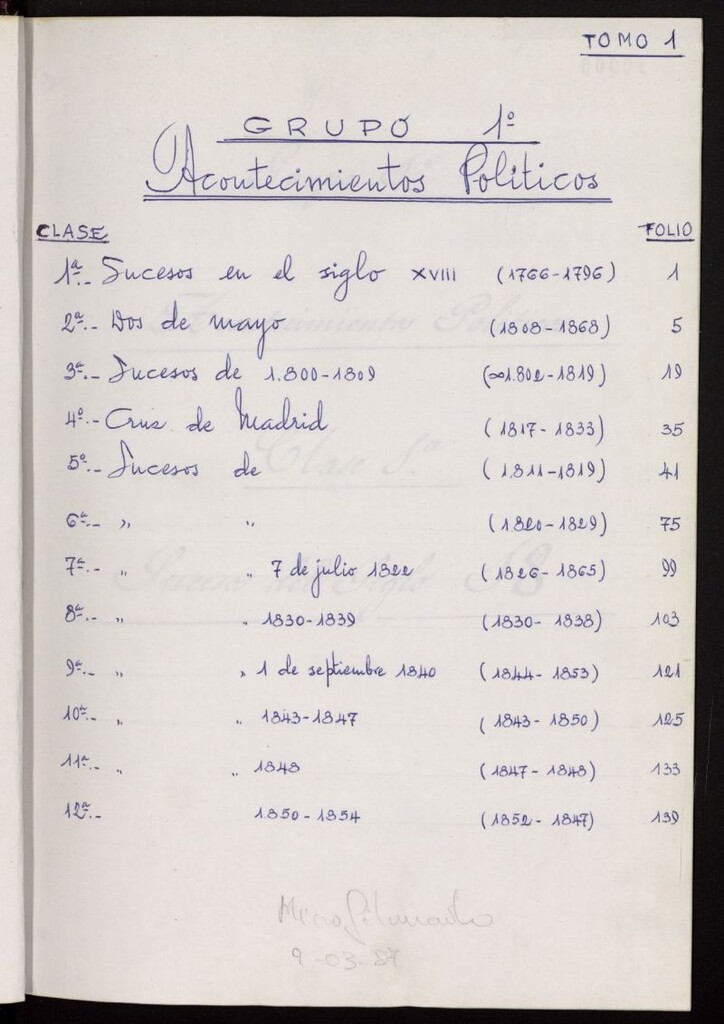 TOMO 1
GRUPO 1º
Acontecimientos Políticos
CLASE FOLIO
1ª.- Sucesos en el siglo XVIII (1766-1796) 1
2ª.- Dos de mayo (1808-1868) 5
3ª.- Sucesos de 1.800-1809 (∞1.802-1819) 19
4º.- Cruz de Madrid (1817-1833) 35
5º.- Sucesos de (1.811-1819) 41
6ª.- " " (1820-1829) 75
7ª.- " " 7 de julio 1822 (1826-1865) 99
8ª.- " " 1830-1839 (1830-1838) 103
9ª.- " " 1 de septiembre 1840 (1844-1853) 121
10ª.- " " 1843-1847 (1843-1850) 125
11ª.- " " 1848 (1847-1848) 133
12ª.- 1.850-1854 (1852-1847) 139
Microfilmado
9-03-87